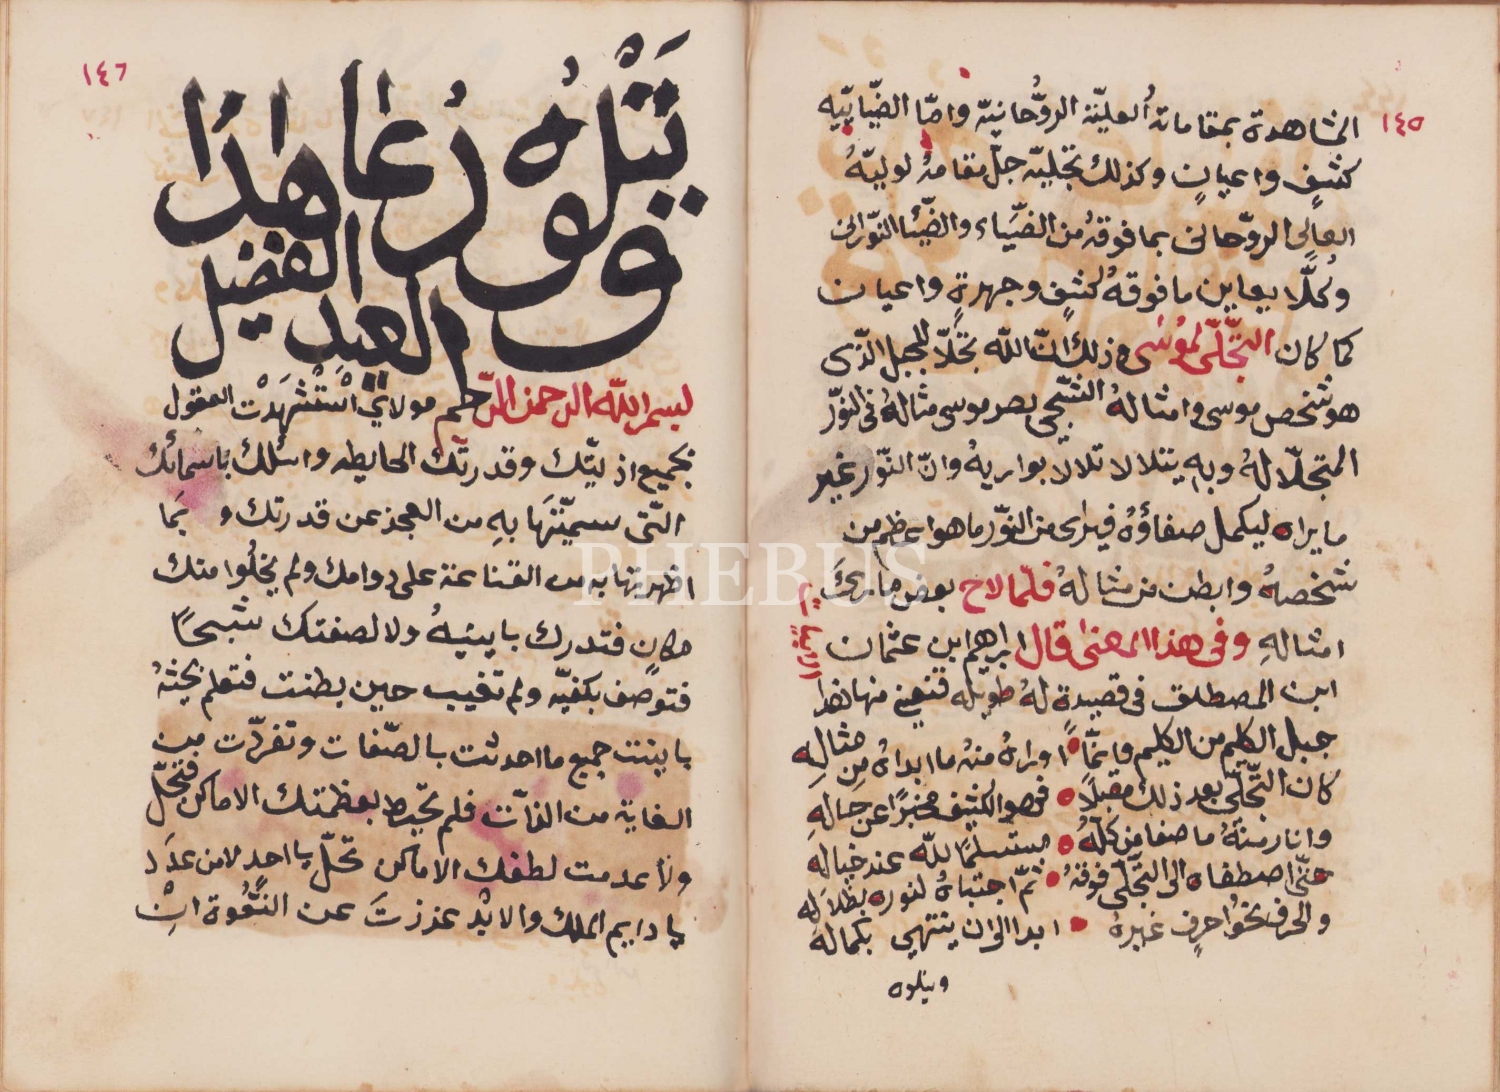 ١٤٥
المشاهدة بمقاماته العليّة الروّحانيّة وامّا الضّيائيّه
كشفٍ واعيانٍ وكذلك تجليّه جلّ مقامهُ
العالي الروّحاني بما فوقهُ من الضّياء والضّيا النّوراني
وكلّاً يعاين ما فوقهُ كشفٍ وجهرةٍ واعيان
كما كان التجّلّي لموُسى وذلك انّ اللّه تجّلّا للجبل الذّي
هو شخص موسى وامثالهُ الشّبحي بصر موسى مثالهُ في النوّر
المتجلّا لهُ وبهِ يتلالا تلالا بواريهُ وانّ النوّر غير
ما يراه ليكمل صفاؤهُ فيرى من النوّر ما هو اعظم من
شخصهُ وابطن من مثالهُ فلّما لاح بعض ما
امثالهِ وفي هذا المعنى قال ابرهيم ابن عثمان
ابن المصطلق في قصيدة لهُ طويله
جبل الكليم من الكليم وانّما اوراهُ منهُ ما ابداهُ من مثالهِ
كان التّجلّي بعد ذلك مقبلاً فهو الكثيف مخبرًا عن حالهِ
وانار منهُ ما صفا من كلّهُ مستسلمًا للّه عند خيالهِ
حتّى اصطفاه الى التجّلّي فوقهُ ثمّ اجتباهُ لنوره بظلالهِ
والحرف نحو احرفٍ غيرهُ ابدا الى ان ينتهي بكمالهِ
ويتلوه
١٤٦
ويتلوه
العبد الفضيل
بسم اللّه الرحمن الرّحيم مولاي اسْتَشْهَدْت العقول
بجميع اذليّتك وقدرتّك الحايطه واسئلك باسمائك
التّي سميّتهَا بهِ من العجز عن قدرتك وبمَا
اظهرتها به من القناعة على دوامك ولم يخلُوا منك
مكانٍ فتدرك باينيهُ ولا لصفتك شبحًا
فتوصف بكفيّه ولم تغيب حين بطنت فتعلم بحثهُ
باينت جميع ما احدثت بالصّفات وتفردّت من
الغاية من الذّات فلم تحّيط بعظمتك الاماكن فتحّل
ولا عدمت لطفك الاماكن تحّل باحدٍ لا من عدَد
يا دايم الملك والابْد عززتَ عن النّعوة انْ